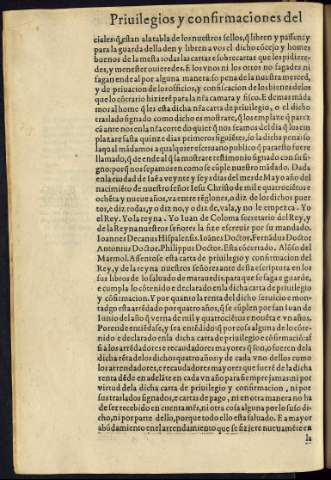 Priuilegios y confirmaciones del
ciales q̃ estan ala tabla de los nuestros sellos, q̃ libren y passen y
para la guarda della den y libren a vos el dicho cõcejo y homes
buenos de la mesta todas las cartas e sobre cartas que les pidieredes,
y menester ouieredes. E los vnos ni los otros no fagades ni
fagan ende al por alguna manera: so pena de la nuestra merced,
y de priuacion de los officios, y confiscacion de los bienes de los
que lo cõtrario hizierẽ para la nr̃a camara y fisco. E demas mãdamos
al home q̃ les esta dicha nr̃a carta de priuilegio, o el dicho
traslado signado como dicho es mostrare, q̃ los emplaze q̃ parezcã
ante nos en la nr̃a corte do quier q̃ nos seamos del dia q̃ los emplazare
fasta quinze dias primeros siguiẽtes, so la dicha pena: so
la qual mãdamos a qualquier escriuano publico q̃ para esto fuere
llamado, q̃ de ende al q̃ la mostrare testimonio signado con su signo:
porq̃ nos sepamos en como se cũple nuestro mãdado. Dada
en la ciudad de Iaẽ a veynte y seys dias del mes de Mayo año del
nacimiẽto de nuestro señor Iesu Christo de mile quatrociẽtos e
ochẽta y nueue años, va entre rẽglones, o diz de los dichos puertos,
e diz, todas, y o diz no, y o diz de, vala, y no le empezca. Yo
el Rey. Yo la reyna. Yo Iuan de Coloma secretario del Rey, y
de la Reyna nuestros señores la fize escreuir por su mandado.
Ioannes Decanus Hispalensis. Ioãnes Doctor. Fernãdus Doctor
Antonius Doctor. Philippus Doctor. Esta cõcertado. Alõso del
Marmol. Assentose esta carta de priuilegio y confirmacion del
Rey, y de la reyna nuestros señores ante desta escriptura en los
sus libros de lo saluado de marauedis, para que se faga e guarde,
e cumpla lo cõtenido e declarado en la dicha carta de priuilegio
y cõfirmacion. Y por quanto la renta del dicho seruicio e montadgo
esta arrẽdado por quatro años, q̃ se cũplen por san Iuan de
Iunio del año q̃ verna de mill y quatrociẽtos e nouẽta e vn años.
Porende entiẽdase, y sea entẽdido q̃ por cosa alguna de lo cõtenido
e declarado en la dicha carta de priuilegio e cõfirmaciõ: al
si a los arrẽdadores e recaudadores mayores q̃ son, o fueren de la
dicha rẽta de los dichos quatro años, y de cada vno dellos como
los arrendadores, e recaudadores mayores que fuerẽ de la dicha
renta dẽde en adelãte en cada vn año para siempre jamas: ni por
virtud de la dicha carta de priuilegio y confirmacion, ni por
sus traslados signados, e cartas de pago, ni en otra manera no ha
de ser recebido en cuenta mrs̃, ni otra cosa alguna por lo suso dicho,
ni por parte dello, porque todo ello esta saluado. E a mayor
abũdamiento en el arrendamiento que se fiziere nueuamẽte en
la